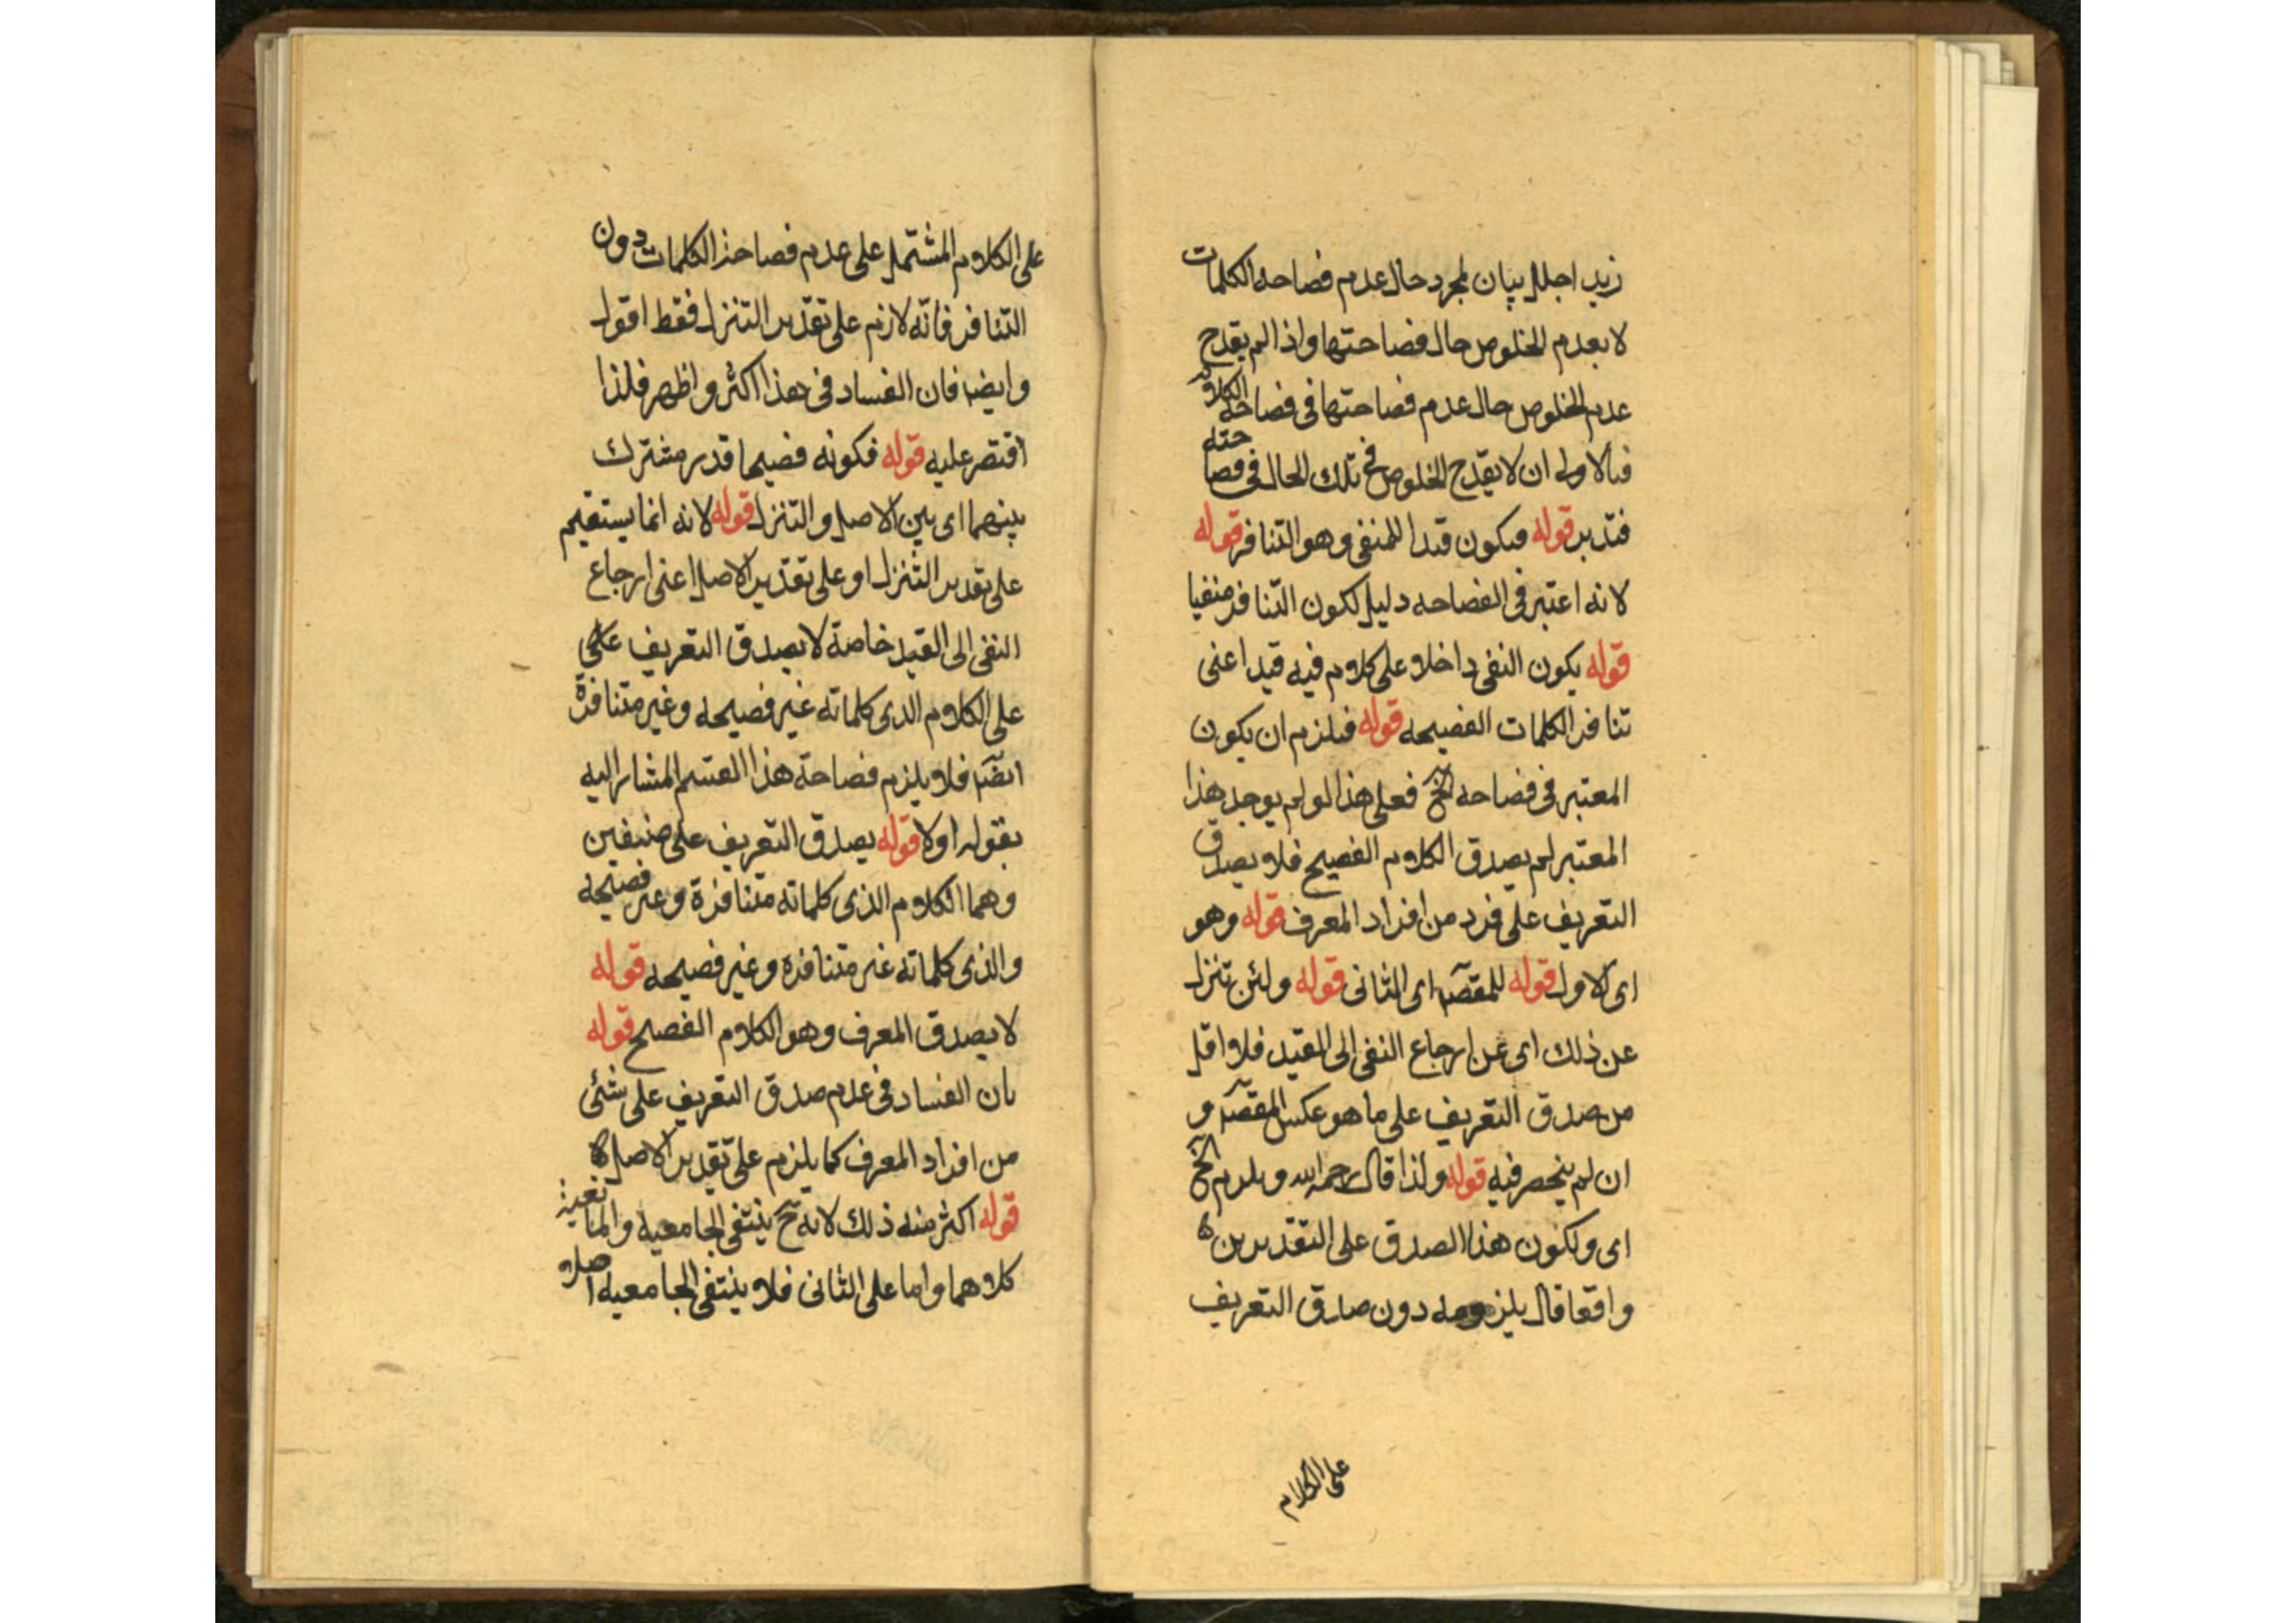 زيد اجلل بيان لمجرد حال عدم فصاحة الكلمات
لا بعدم الخلوص حال فصاحتها واذا لم يقدح
عدم الخلوص حال عدم فصاحتها فى فصاحة الكلام
فبالاولى ان لا يقدح الخلوص فى تلك الحال فى فصاحته
فتدبر قوله فيكون قيدا للمنفى وهو التنافر قوله
لانه اعتبر فى الفصاحه دليل لكون التنافر منفيا
قوله يكون النفى داخلا على كلام فيه قيد اعنى
تنافر الكلمات الفصيحه قوله فيلزم ان يكون
المعتبر فى فصاحه الخ فعلى هذا لو لم يوجد هذا
المعتبر لم يصدق الكلام الفصيح فلا يصدق
التعريف على فرد من افراد المعرف قوله وهو
اى الاول قوله للمقصَ اى الثانى قوله ولئن تنزل
عن ذلك اى عن ارجاع النفى الى القيد فلا اقل
من صدق التعريف على ما هو عكس المقصَ و
ان لم ينحصر فيه قوله ولذا قال رحمه الله ويلزم الخ
اى ولكون هذا الصدق على التقديرين
واقعا قال يلزم دون صادق التعريف
على الكلام
على الكلام المشتمل على عدم فصاحة الكلمات دون
التنافر فانّه لازم على تقدير التنزل فقط اقول
وايضا فان الفساد فى هذا اكثر واظهر فلذا
اقتصر عليه قوله فكونه فصيحا قدر مشترك
بينهما اى بين الاصل والتنزل قوله لانه انما يستقيم
على تقدير التنزل او على تقدير الاصل اعنى ارجاع
النفى الى القيد خاصة لا يصدق التعريف على
على الكلام الذى كلماته غير فصيحه وغير متنافرة
ايضَا فلا يلزم فصاحة هذا القسم المشار اليه
بقوله اولا قوله يصدق التعريف على صنفين
وهما الكلام الذى كلماته متنافرة وغير فصيحه
والذى كلماته غير متنافره وغير فصيحه قوله
لا يصدق المعرف وهو الكلام الفصيح قوله
بان الفساد فى عدم صدق التعريف على شئى
من افراد المعرف كما يلزم على تقدير الاصل
قوله اكثر منه ذلك لانه ح ينتفى الجامعيه والمانعية
كلاهما واما على الثانى فلا ينتفى الجامعيه اصلا